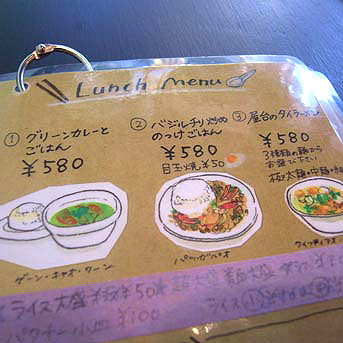 Lunch Menu
① グリーンカレーと
ごはん
¥580
ゲーン・キャオ・ワーン
② バジルチリ炒め
のっけごはん
¥580
目玉焼¥50
パッ・ガパオ
③ 屋台のタイラーメン
¥580
3種類の麺から
お選び下さい
極太麺・中麺・
ライス大盛 ¥50
パクチー小皿 ¥100
ライス